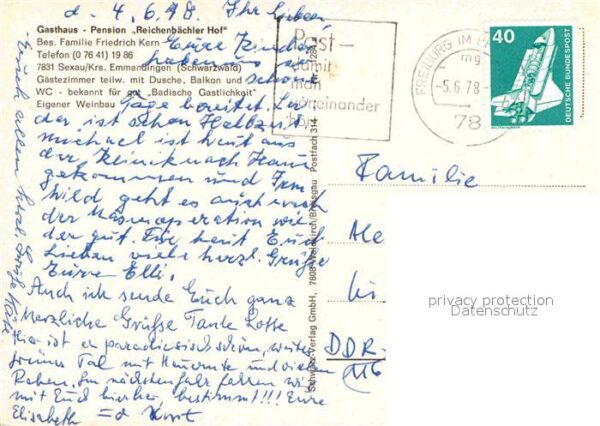 d. 4.6.78. Ihr Lieben,
Gasthaus - Pension „Reichenbächler Hof"
Bes. Familie Friedrich Kern
Telefon (0 76 41) 19 86
7831 Sexau/Krs. Emmendingen (Schwarzwald)
Gästezimmer teilw. mit Dusche, Balkon und
WC - bekannt für gut „Badische Gastlichkeit"
Eigener Weinbau
Eure Kinder
haben uns
schöne
Tage bereitet. Lei
der ist schon Halbzeit
Michael ist heut aus
der Klinik nach Haus
gekommen und Irm
hild geht es auch nach
der Magenoperation wie
der gut. Für heut Euch
Lieben viele herzl. Grüße
Eure Elli.
Auch ich sende Euch ganz
herzliche Grüße Tante Lotte
Hier ist es paradiesisch schön, weites
grünes Tal mit und vielen
Reben. Im nächsten Jahr fahren wir
mit Euch hierher, bestimmt!!! Eure
Elisabeth Kurt
Euch allen herzl. Grüße
Post-
damit
man
voneinander
hört
FREIBURG IM
mg
-5.6.78-
78
40
DEUTSCHE BUNDESPOST
Schwarz-Verlag GmbH, 7808 Waldkirch/Breisgau Postfach 314
Familie
DDR-
privacy protection
Datenschutz